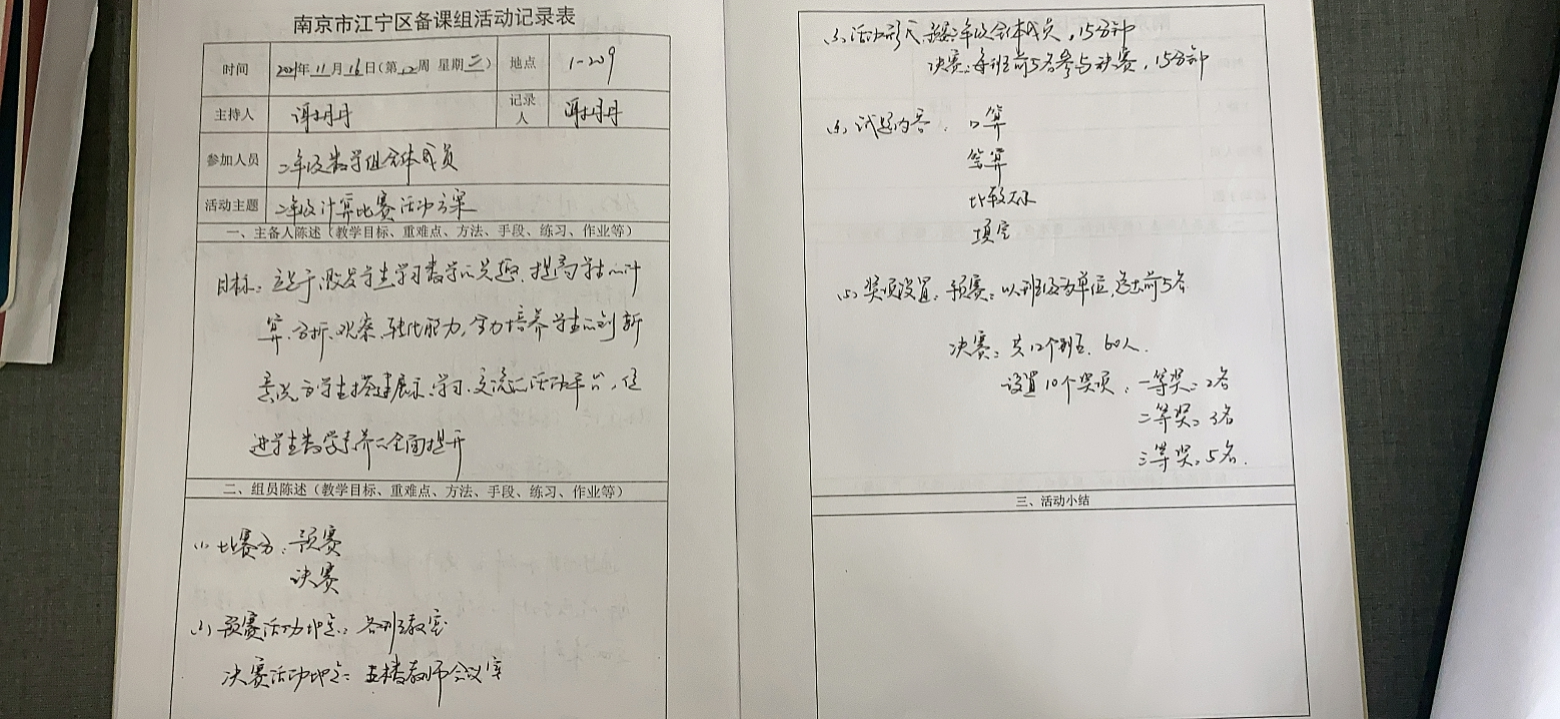 南京市江宁区备课组活动记录表
时间 2021年11月16日(第12周 星期二) 地点 1-209
主持人 谢明丹 记录人 谢明丹
参加人员 二年级数学组全体成员
活动主题 二年级计算比赛活动方案
一、主备人陈述（教学目标、重难点、方法、手段、练习、作业等）
目标：立足于激发学生学习数学的兴趣，提高学生的计
算、分析、观察、对比能力，全力培养学生的创新
意识，为学生搭建展示、学习、交流的活动平台，促
进学生数学素养的全面提升
二、组员陈述（教学目标、重难点、方法、手段、练习、作业等）
(1) 比赛分：预赛
决赛
(2) 预赛活动地点：各班教室
决赛活动地点：五楼教师会议室
(3) 活动形式 预赛：年级全体成员，15分钟
决赛：每班前5名参与决赛，15分钟
(4) 试题内容：口算
笔算
比较大小
填空
(5) 奖项设置：预赛：以班级为单位，选出前5名
决赛：共12个班，60人．
设置10个奖项：一等奖：2名
二等奖：3名
三等奖：5名．
三、活动小结